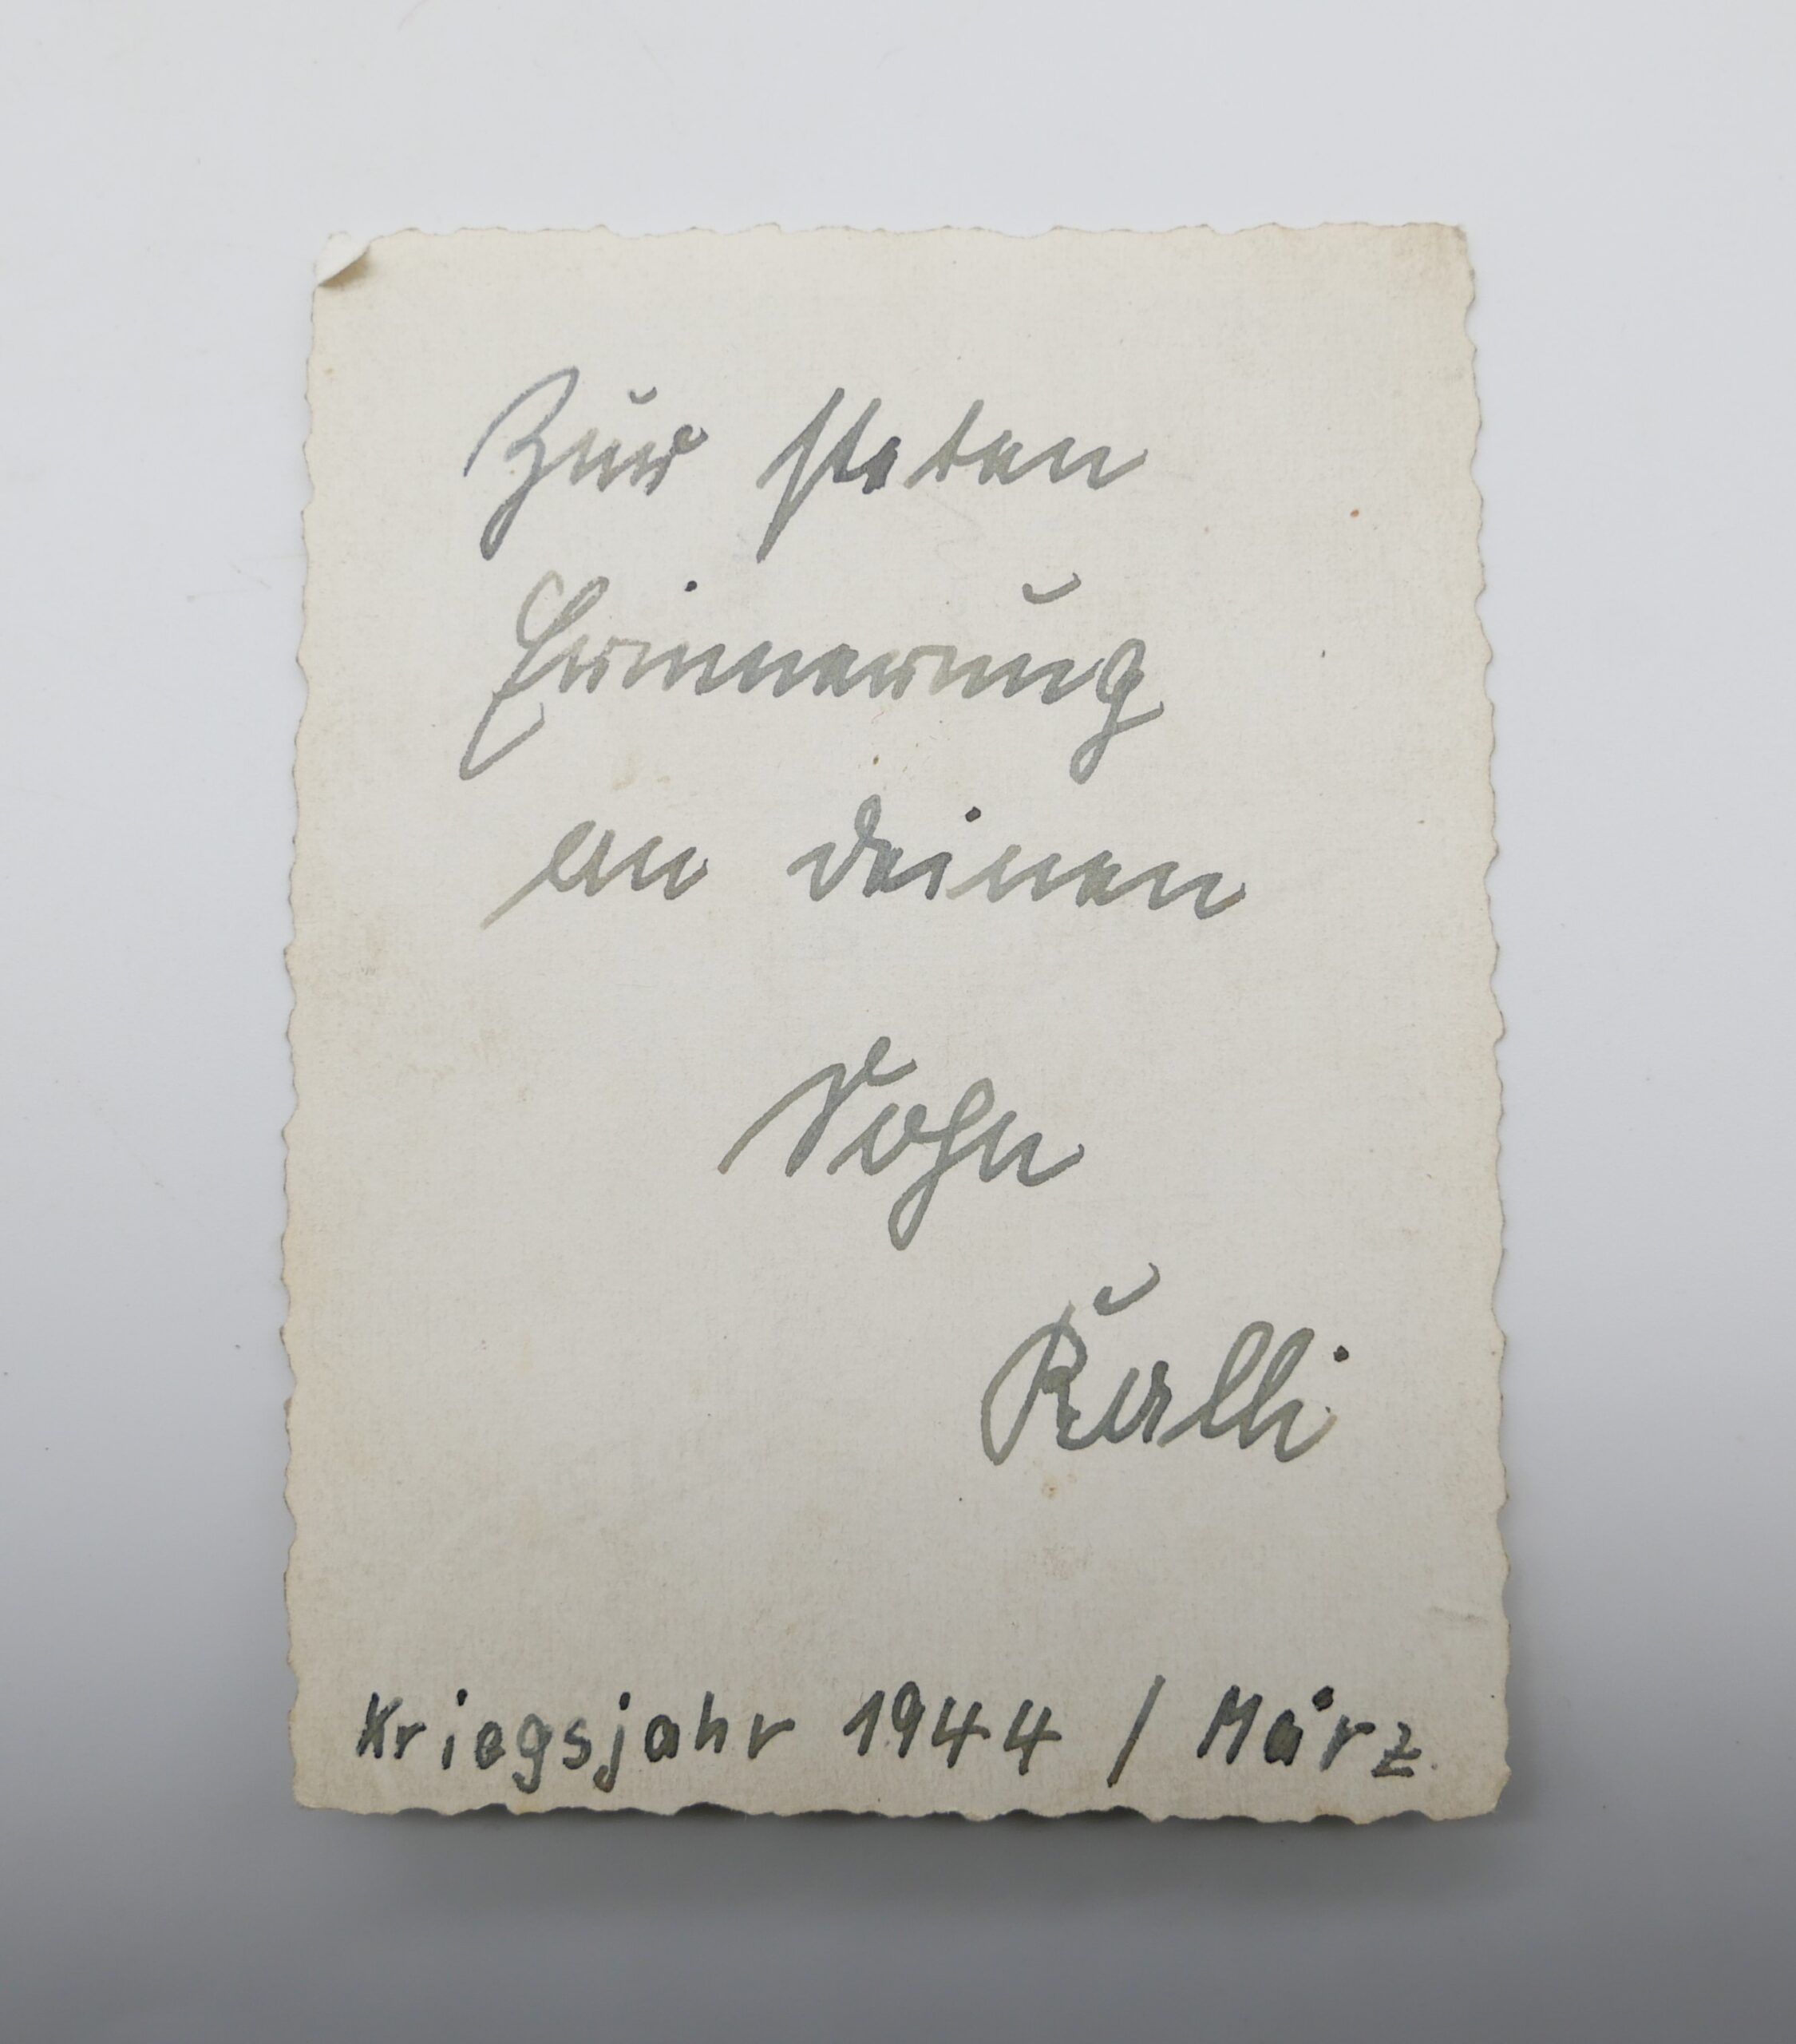 Zur steten
Erinnerung
an deinen
Sohn
Kalli
Kriegsjahr 1944 / März.